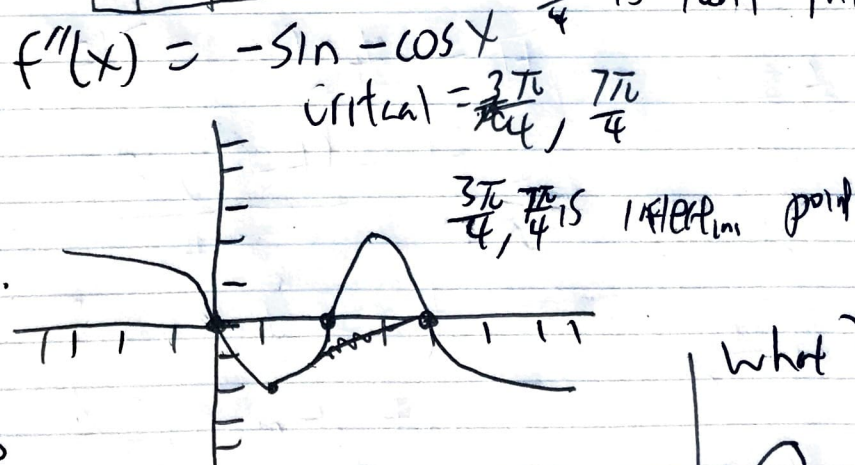 π/4 is
f''(x) = -sin - cos x
critcal = 3π/4, 7π/4
3π/4, 7π/4 is inflection point
what